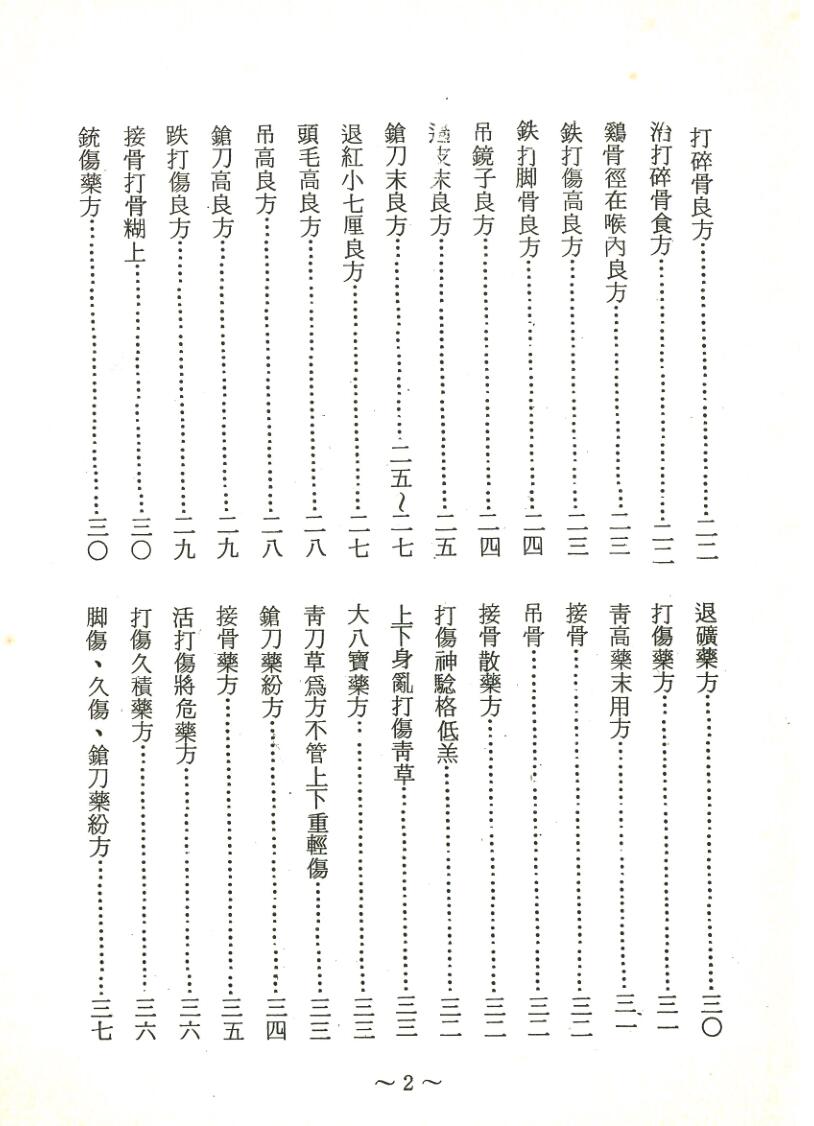 打碎骨良方……二二
治打碎骨食方……二二
鷄骨徑在喉內良方……二三
鉄打傷高良方……二三
鉄打脚骨良方……二四
吊鏡子良方……二四
末良方……二五
鎗刀末良方……二五~二七
退紅小七厘良方……二七
頭毛高良方……二八
吊高良方……二八
鎗刀高良方……二九
跌打傷良方……二九
接骨打骨糊上……三〇
銃傷藥方……三〇
退礦藥方……三〇
打傷藥方……三一
靑高藥末用方……三一
接骨……三二
吊骨……三二
接骨散藥方……三二
打傷神騐格低羔……三二
上下身亂打傷靑草……三三
大八寶藥方……三三
靑刀草爲方不管上下重輕傷……三三
鎗刀藥紛方……三四
接骨藥方……三五
活打傷將危藥方……三六
打傷久積藥方……三六
脚傷、久傷、鎗刀藥紛方……三七
~2~